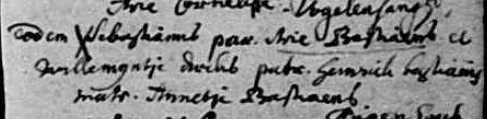 Arie Cornelisse. Vogelensangh
Eodem Sebastianus par. Arie Bastiaens et
Willemyntje patr. Henrick bastiaens
matr. Annetje Bastiaens